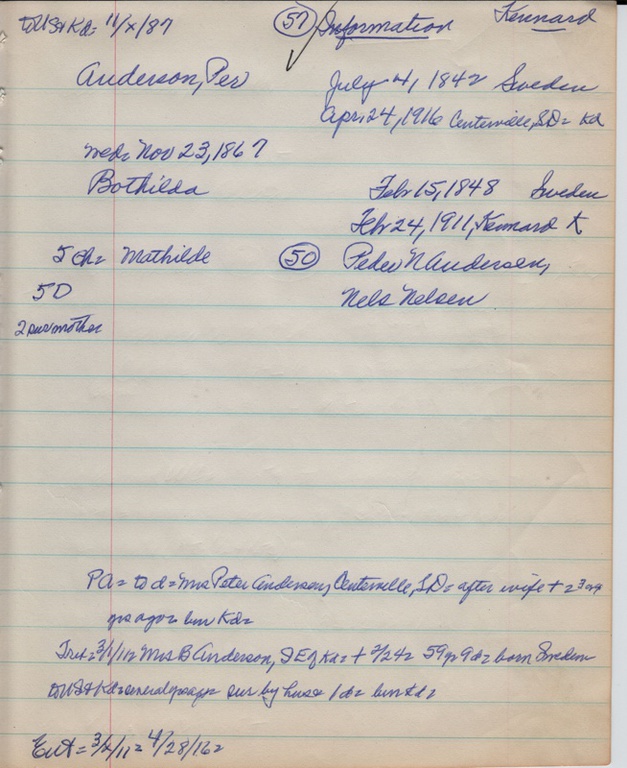 to US + Kd = 11/x/87 (57) Information Kennard
Anderson, Per July 4, 1842 Sweden
April 24, 1916 Centerville, SD = Kd
wed = Nov 23, 1867
Bothilda Feb 15, 1848 Sweden
Feb 24, 1911, Kennard K
5 ch = Mathilde (50) Peder N Andersen,
5 D Nels Nelsen
2 sur mother
PA = to d = Mrs Peter Anderson, Centerville, SD = after wife +
yrs ago = bur Kd =
3/1/11 = Mrs B Anderson, SE of Kd = + 2/24 = 59 yr 9 d = born Sweden
to US + Kd = several yrs ago = sur by hus = 1 d = bur Kd =
Ent = 3/2/11 = 4/28/16 =